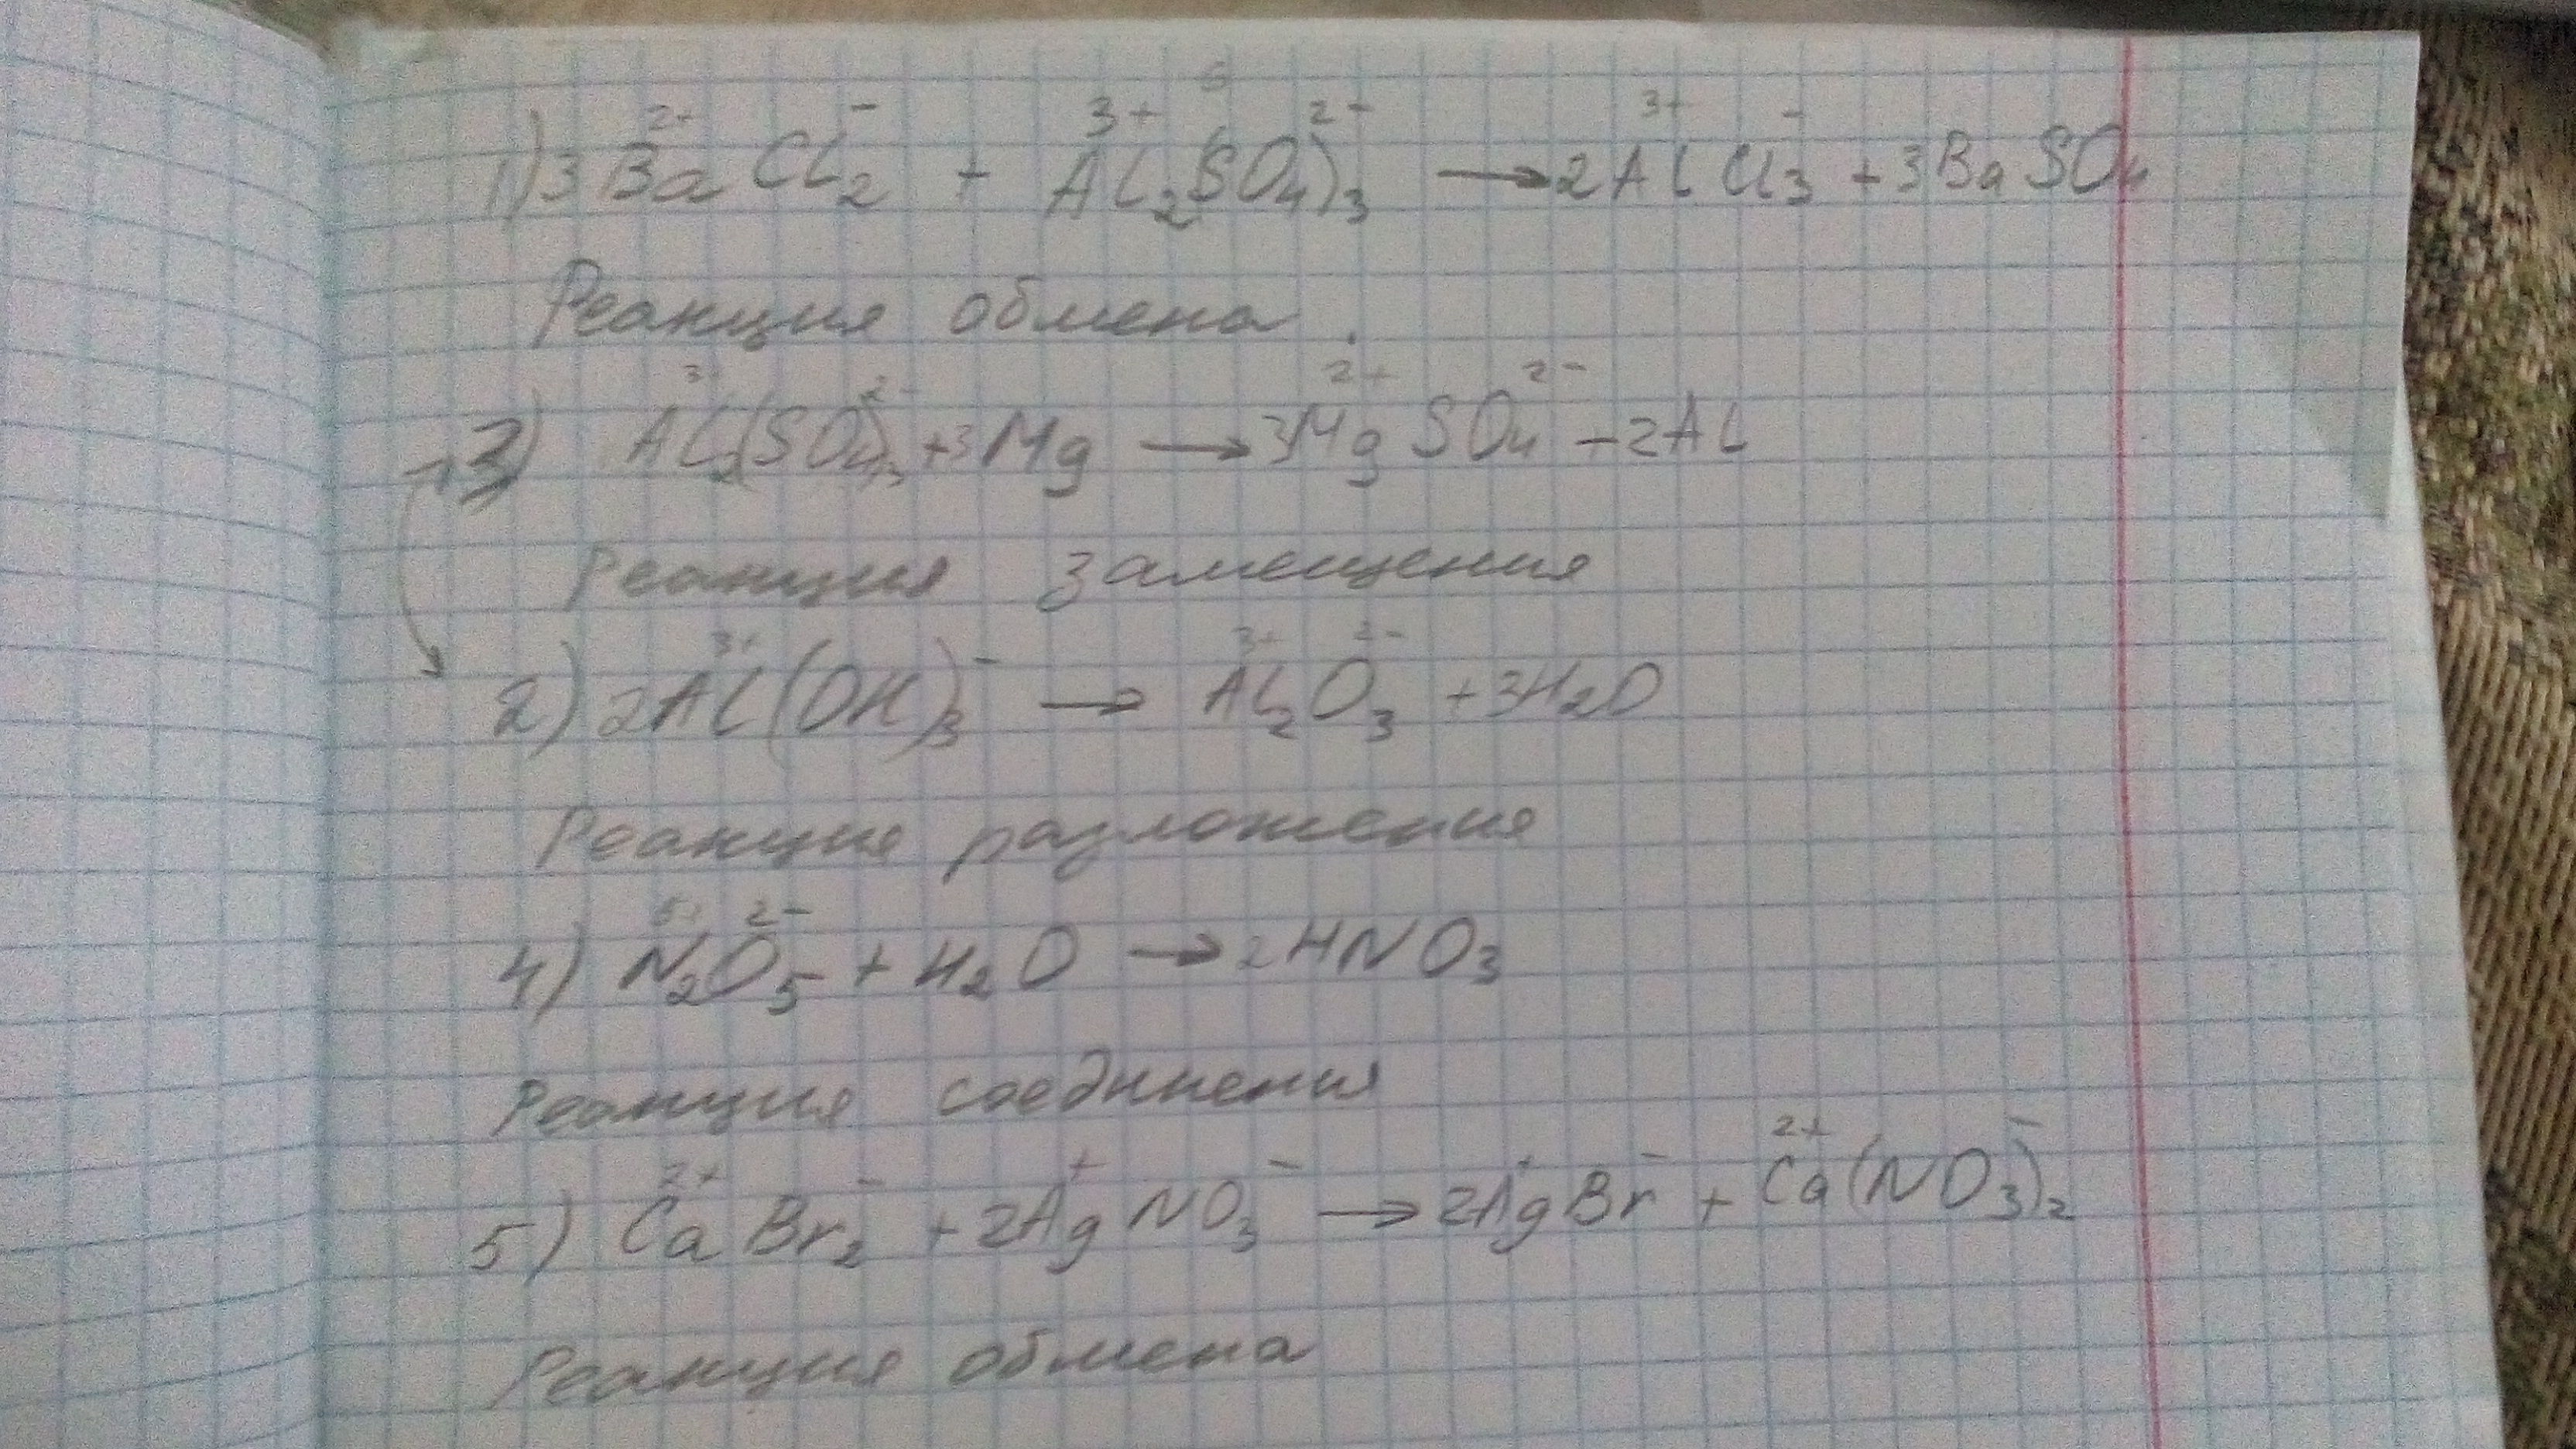 1) 3Ba²⁺Cl⁻₂ + Al³⁺₂(SO₄)²⁻₃ → 2Al³⁺Cl⁻₃ + 3BaSO₄
Реакция обмена.
3) Al³⁺₂(SO₄)²⁻₃ + 3Mg → 3Mg²⁺SO₄²⁻ + 2Al
Реакция замещения
2) 2Al³⁺(OH)⁻₃ → Al³⁺₂O²⁻₃ + 3H₂O
Реакция разложения
4) N⁵⁺₂O²⁻₅ + H₂O → 2HNO₃
Реакция соединения
5) Ca²⁺Br⁻₂ + 2Ag⁺NO₃⁻ → 2Ag⁺Br⁻ + Ca²⁺(NO₃)⁻₂
Реакция обмена